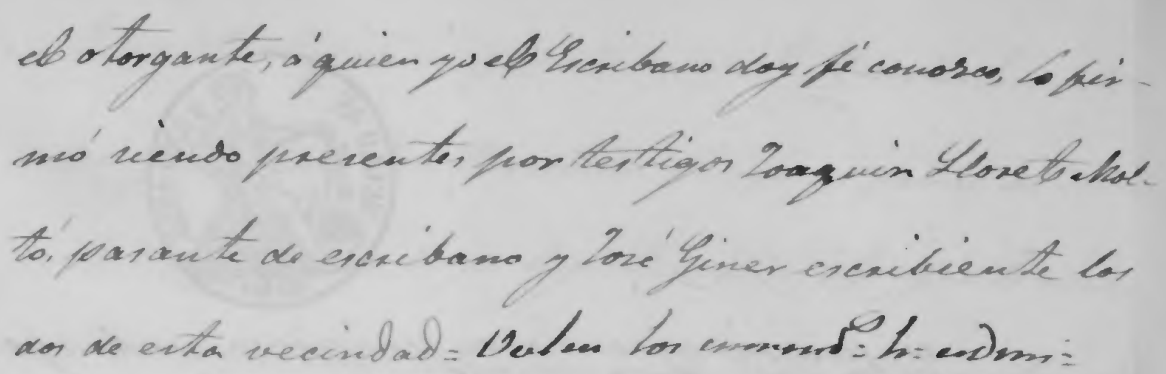 el otorgante, á quien yo el Escribano doy fé conosco, lo fir-
mó siendo presentes por testigos Joaquin Lloret Mol-
tó, pasante de escribano y José Giner escribiente los
dos de esta vecindad = Valen los enmend.s =